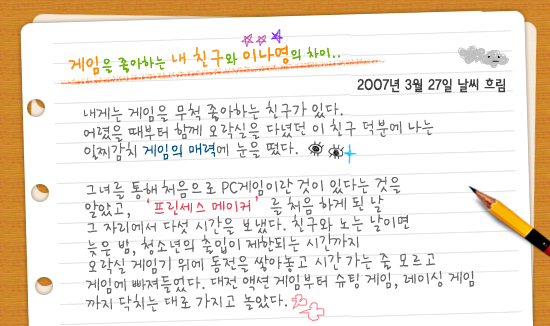 게임을 좋아하는 내 친구와 이나영의 차이..
2007년 3월 27일 날씨 흐림
내게는 게임을 무척 좋아하는 친구가 있다.
어렸을 때부터 함께 오락실을 다녔던 이 친구 덕분에 나는
일찌감치 게임의 매력에 눈을 떴다.
그녀를 통해 처음으로 PC게임이란 것이 있다는 것을
알았고, ‘프린세스 메이커’를 처음 하게 된 날
그 자리에서 다섯 시간을 보냈다. 친구와 노는 날이면
늦은 밤, 청소년의 출입이 제한되는 시간까지
오락실 게임기 위에 동전을 쌓아놓고 시간 가는 줄 모르고
게임에 빠져들었다. 대전 액션 게임부터 슈팅 게임, 레이싱 게임
까지 닥치는 대로 가지고 놀았다.